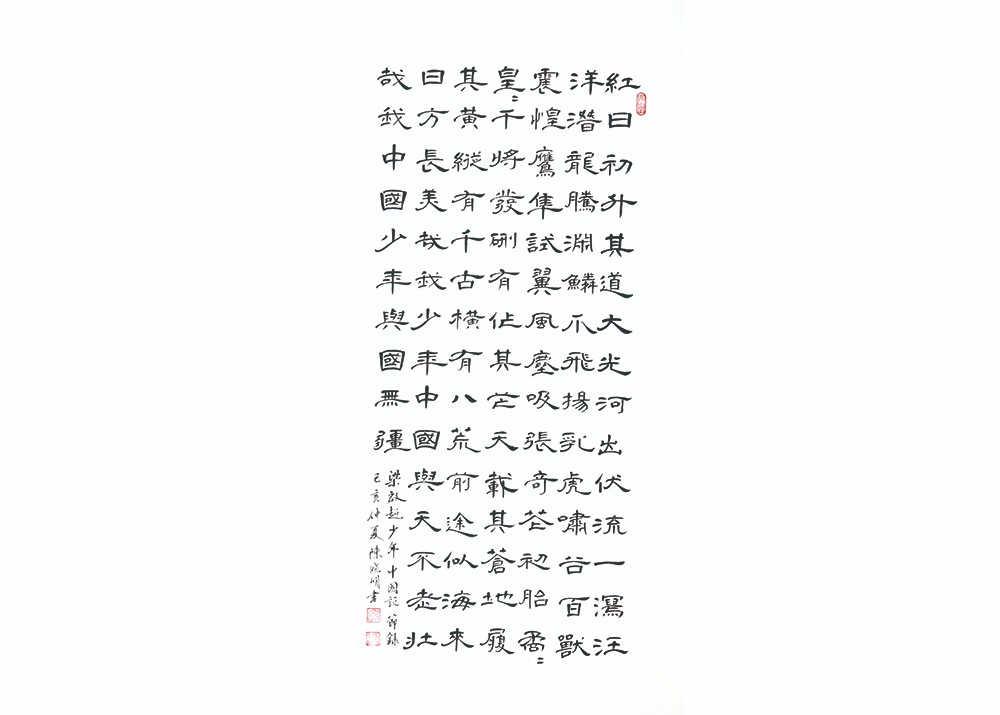 紅日初升其道大光河出伏流一瀉汪
洋潛龍騰淵鱗爪飛揚乳虎嘯谷百獸
震惶鷹隼試翼風塵吸張奇花初胎矞〻
皇〻干將發硎有作其芒天載其蒼地履
其黃縱有千古橫有八荒前途似海來
日方長美哉我少年中國與天不老壯
哉我中國少年與國無疆
梁啟超少年中國說節錄
己亥仲夏陳曉明書